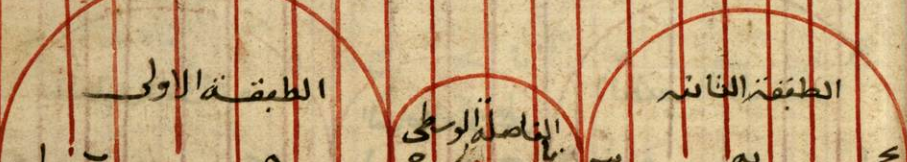 الطبقة الثانية
الفاصلة الوسطى
الطبقة الاولى